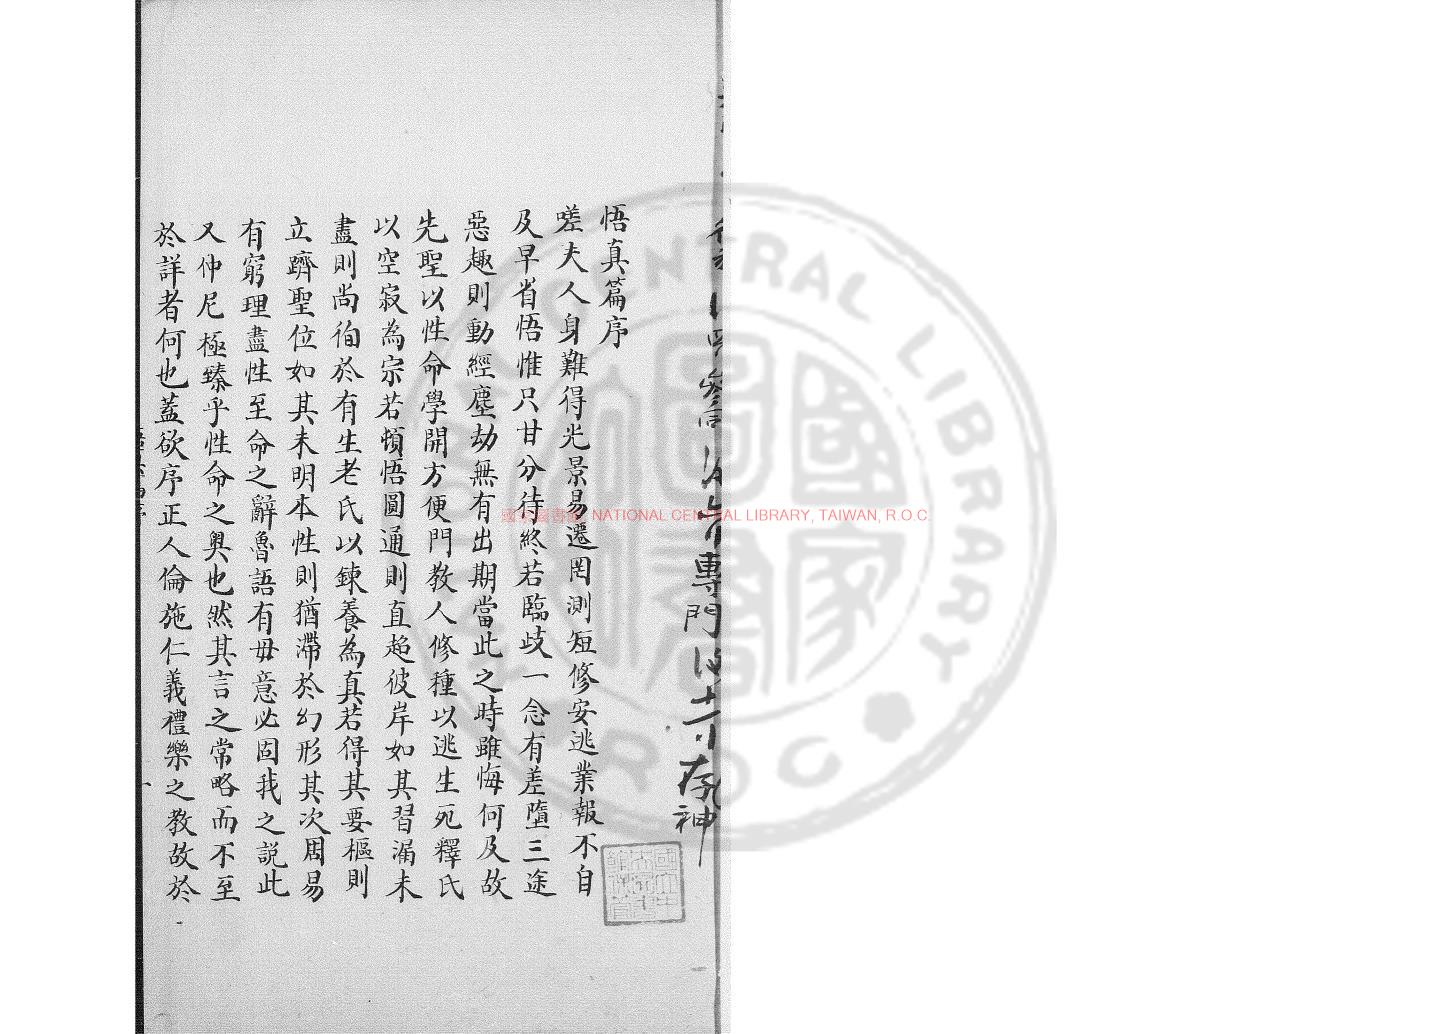 專門
存神
悟真篇序
嗟夫人身難得光景易遷罔測短修安逃業報不自
及早省悟惟只甘分待終若臨歧一念有差墮三途
惡趣則動經塵劫無有出期當此之時雖悔何及故
先聖以性命學開方便門教人修種以逃生死釋氏
以空寂為宗若頓悟圓通則直超彼岸如其習漏未
盡則尚徇於有生老氏以鍊養為真若得其要樞則
立躋聖位如其未明本性則猶滯於幻形其次周易
有窮理盡性至命之辭魯語有毋意必固我之說此
又仲尼極臻乎性命之奧也然其言之常略而不至
於詳者何也蓋欲序正人倫施仁義禮樂之教故於
國家圖書館, NATIONAL CENTRAL LIBRARY, TAIWAN, R.O.C.
NATIONAL CENTRAL LIBRARY
國家圖書館
國立中央圖書館保管